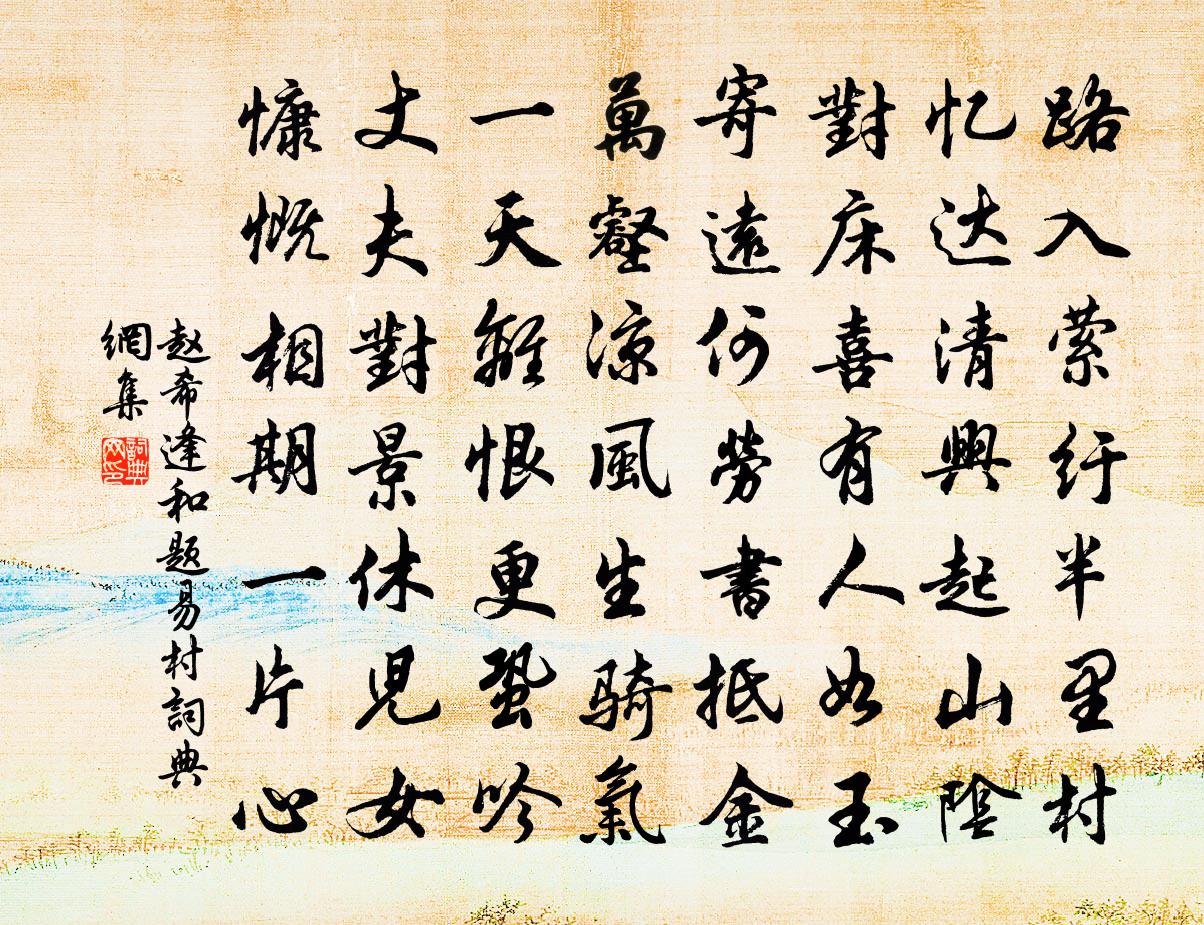 路入萦纡半里村
忆达清興起山陰
對床喜有人如玉
寄遠何勞書抵金
萬壑凉風生騎氣
一天離恨更蛩吟
丈夫對景休兒女
慷慨相期一片心
赵希逢和题易村詞典
網集
詞典
网印